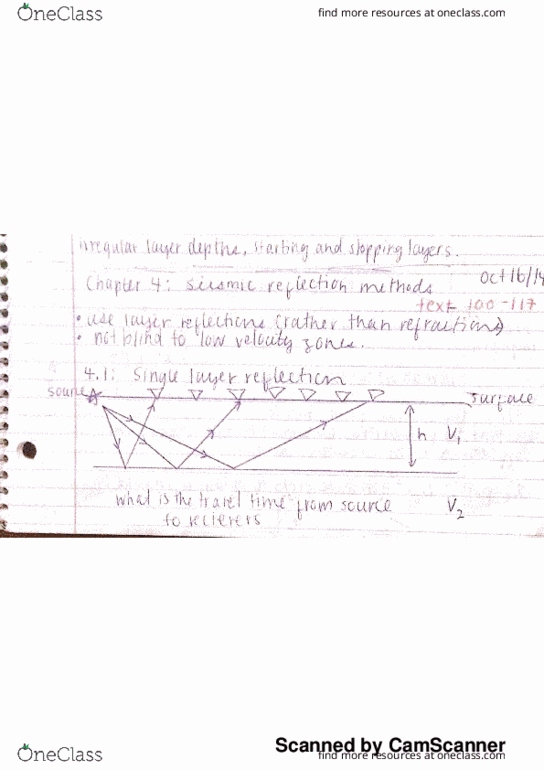 OneClass
find more resources at oneclass.com
irregular layer depths, starting and stopping layers.
Chapter 4: seismic reflection methods
oct 16/14
text 100-117
• use layer reflections (rather than refractions)
• not blind to low velocity zones.
4.1: Single layer reflection
source
surface
h
V1
what is the travel time from source
to recievers
V2
Scanned by CamScanner
OneClass
find more resources at oneclass.com